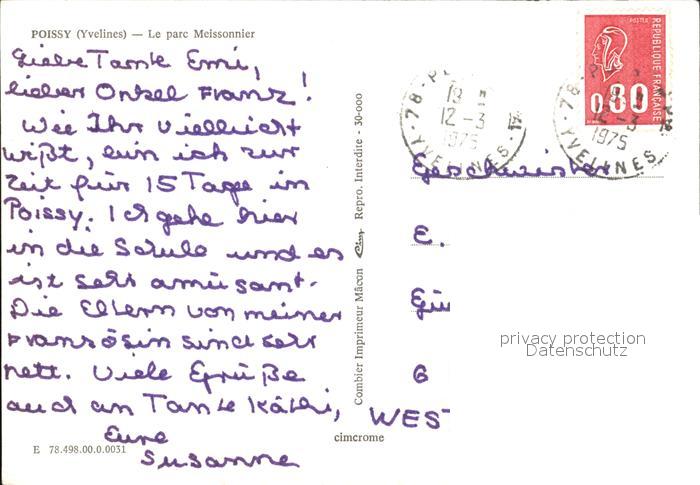 POISSY (Yvelines) — Le parc Meissonnier
Liebe Tante Emi,
lieber Onkel Franz!
Wie Ihr vielleicht
wißt, bin ich zur
Zeit für 15 Tage in
Poissy. Ich gehe hier
in die Schule und es
ist sehr amüsant.
Die Eltern von meiner
Französin sind sehr
nett. Viele Grüße
auch an Tante Käthi,
Eure
Susanne
E 78.498.00.0.0031
Combier Imprimeur Mâcon Cim Repro. Interdite - 30-000
cimcrome
POSTES
REPUBLIQUE FRANÇAISE
0,80
78 - P
12-3
1975
YVELINES
78 - P
12-3
1975
YVELINES
Geschwister
E.
G
WEST
privacy protection
Datenschutz